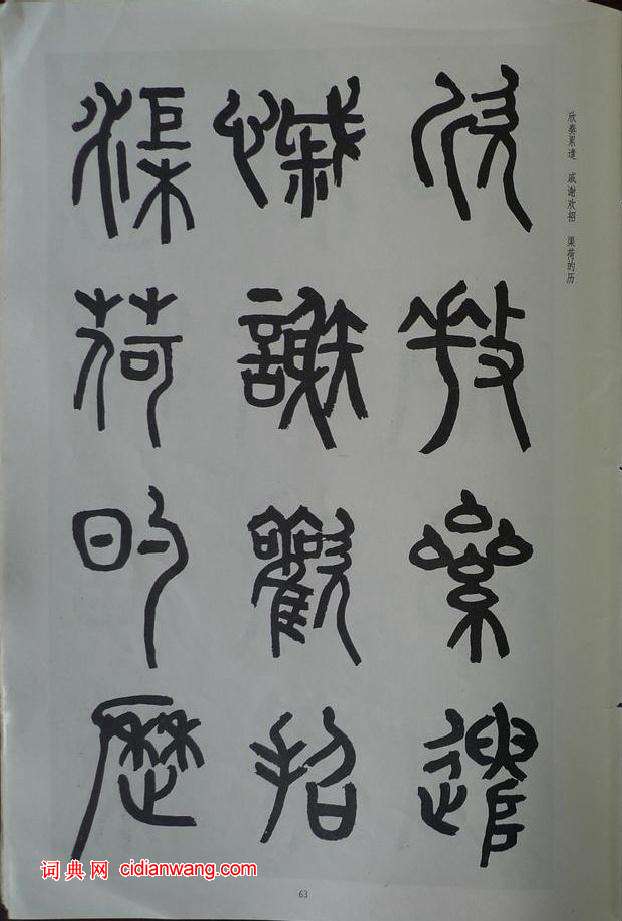 欣奏累遣　戚谢欢招　渠荷的历
欣奏絫遣
慽謝歡招
渠荷的歷
词典网 cidianwang.com
63